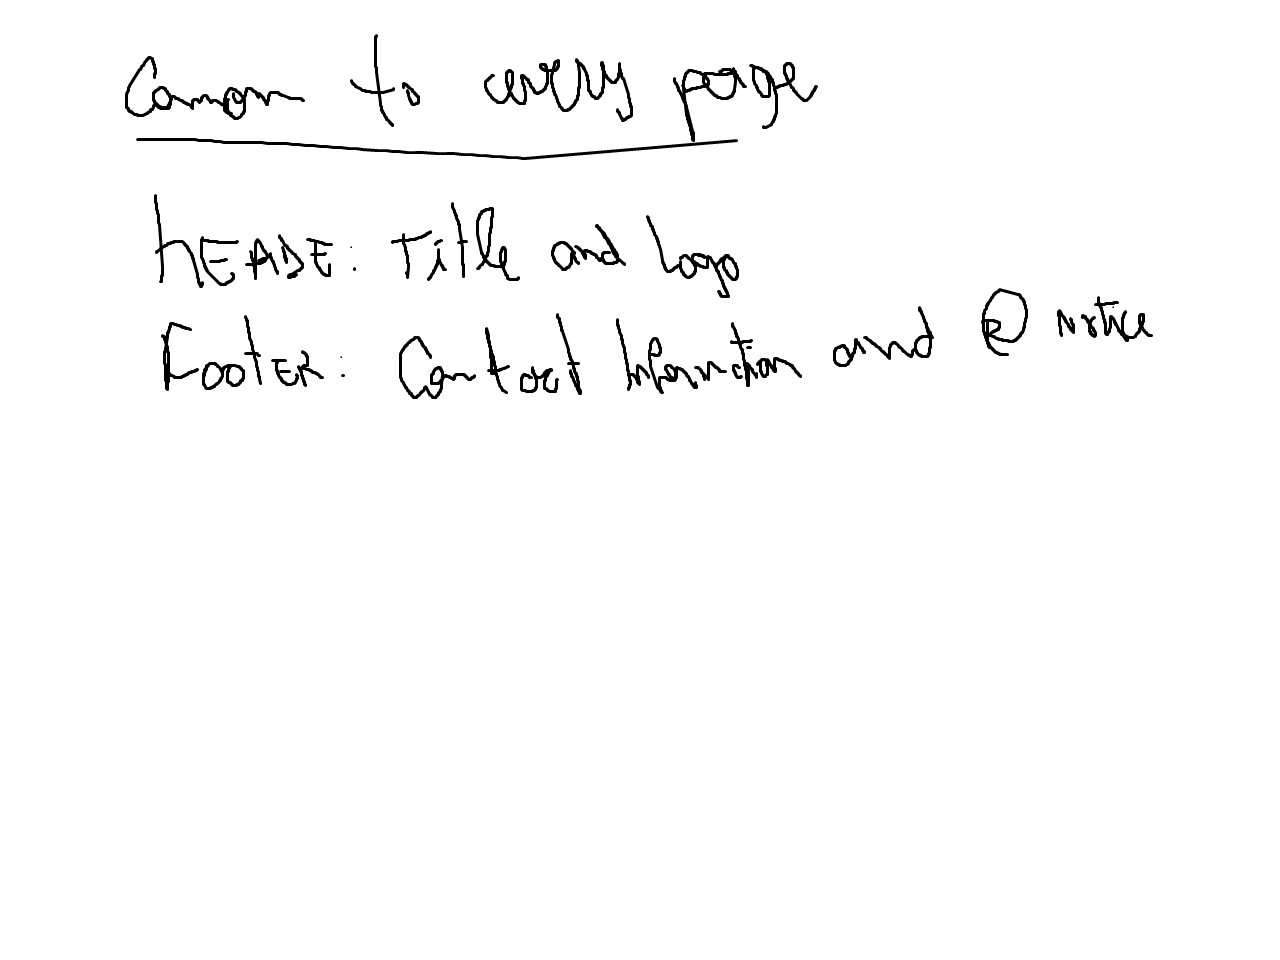 Common to every page
HEADE: Title and Logo
FOOTER: Contact Information and ® notice